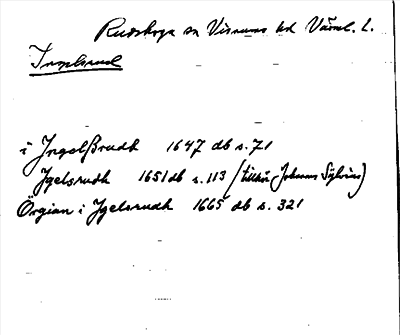 Rudskoga sn Visnums hd Värml. l.
Ingelsrud
i Jngelßrudh 1647 db s. 71
Jgelsrudh 1651 db s. 113 (tillhör Johannes Sylvius)
Örgian i Jgelsrudh 1665 db s. 321